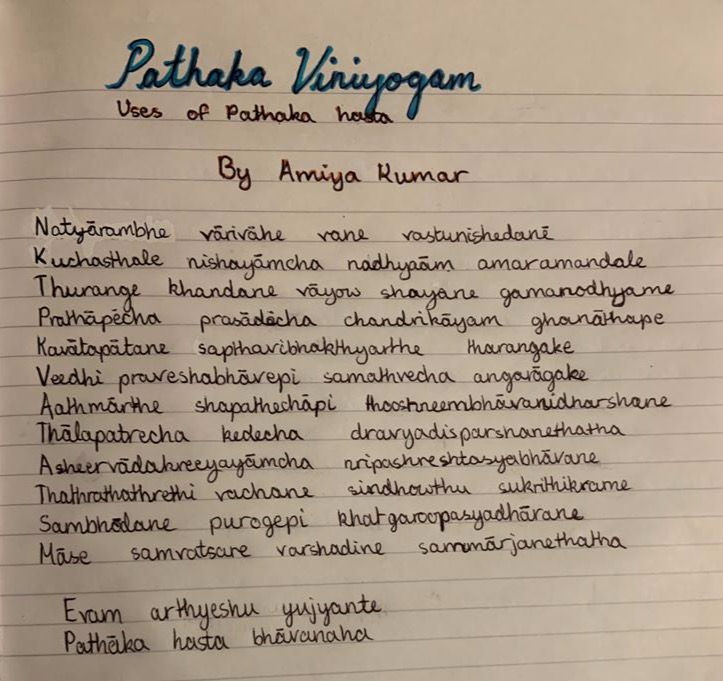 Pathaka Viniyogam
Uses of Pathaka hasta
By Amiya Kumar
Natyārambhe vārivāhe vane vastunishedanē
Kuchasthale nishayāmcha nadhyaām amaramandale
Thurange khandane vāyow shayane gamanodhyame
Prathāpēcha prasādēcha chandrikāyam ghanāthape
Kavātapātane sapthavibhakthyarthe tharangake
Veedhi praveshabhāvepi samathvecha angarāgake
Aathmārthe shapathechāpi thooshneembhāvanidharshane
Thālapatrecha kedecha dravyadisparshanethatha
Asheervādakreeyayāmcha nripashreshtasyabhāvane
Thathrathathrethi vachane sindhowthu sukrithikrame
Sambhōdane purogepi khatgaroopasyadhārane
Māse samvatsare varshadine sammārjanethatha
Evam arthyeshu yujyante
Pathāka hasta bhāvanaha